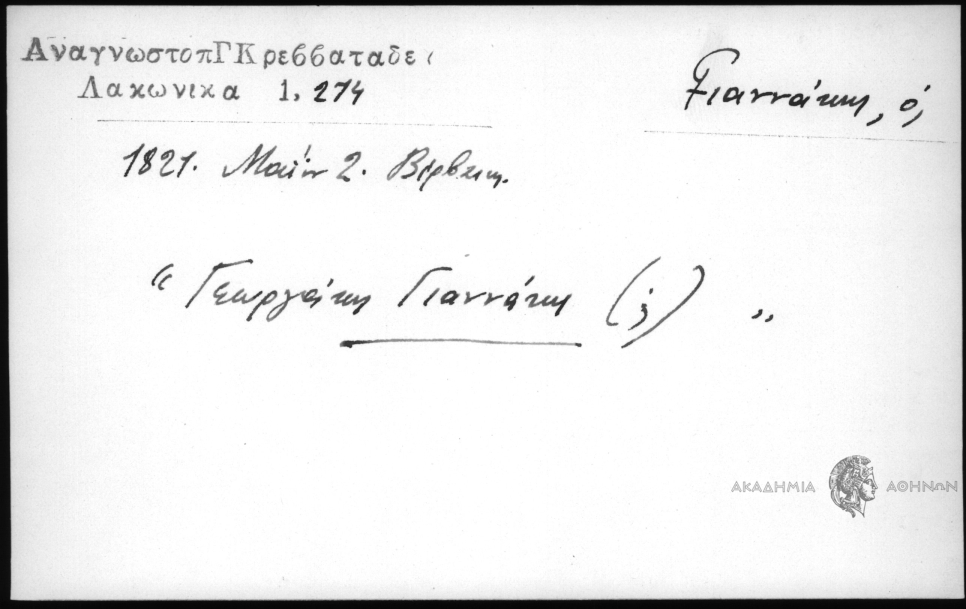 ΑναγνωστοπΓΚρεββαταδε
Λακωνικα 1. 274
Γιαννάκης, ὁ,
1821. Μαΐου 2. Βέρβενα.
“ Γεωργάκης Γιαννάκης (;) ”
ΑΚΑΔΗΜΙΑ ΑΘΗΝΩΝ